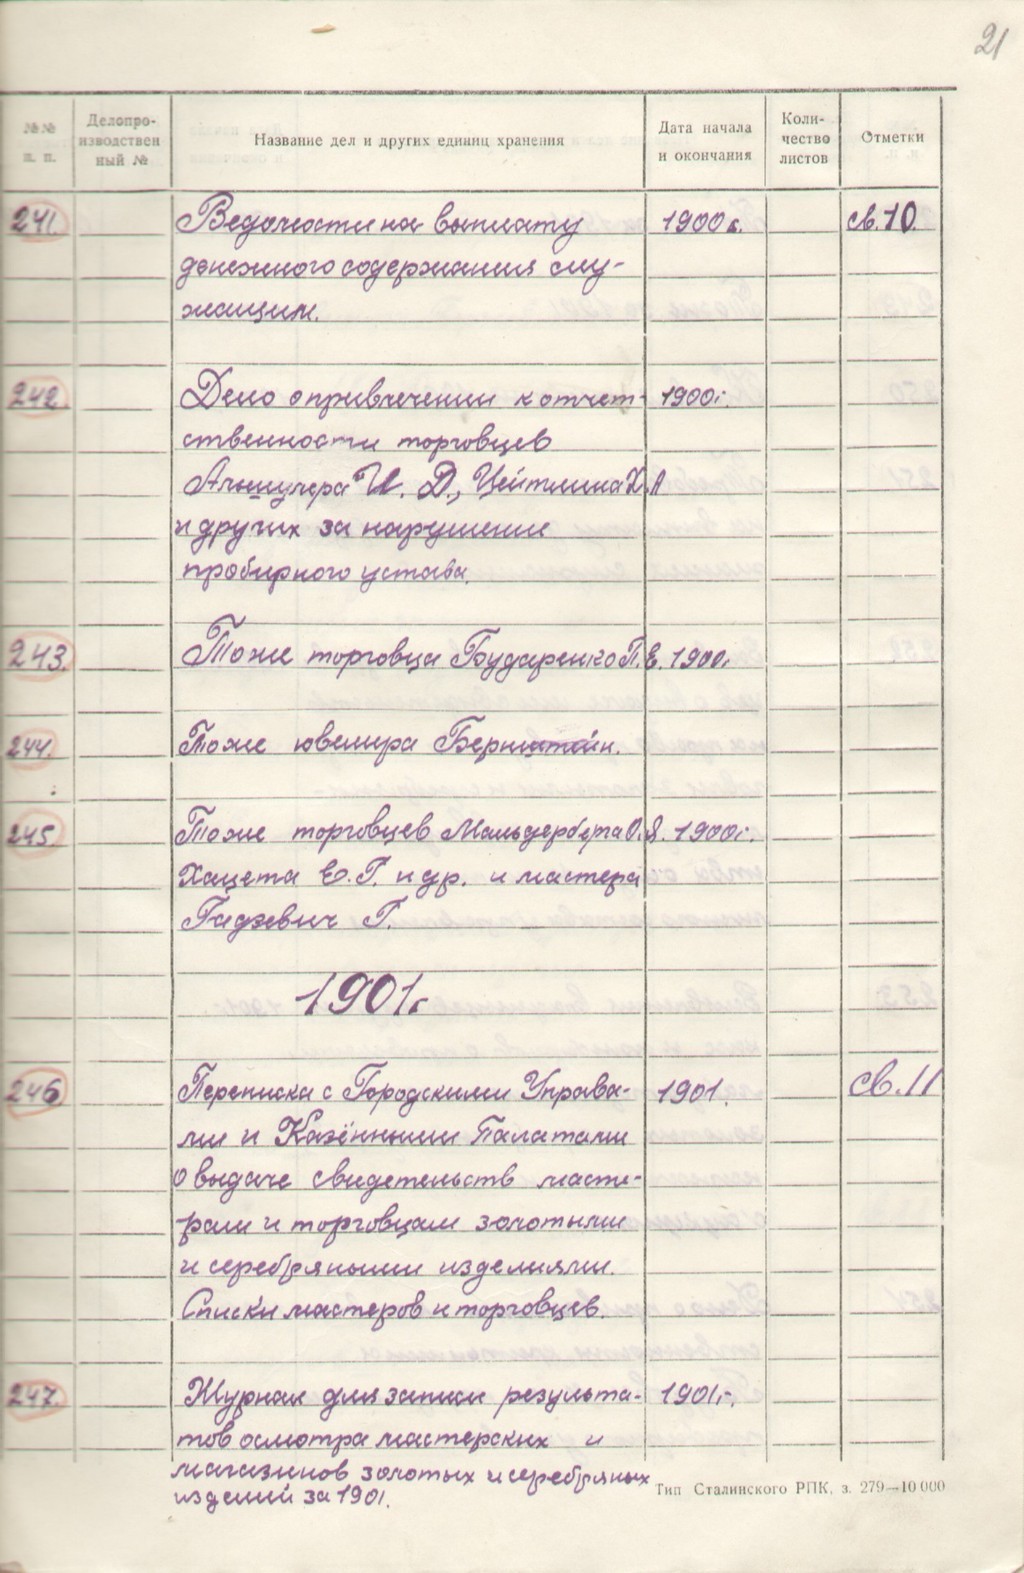 21
№№ п. п.
Делопро-
изводствен
ный №
Название дел и других единиц хранения
Дата начала
и окончания
Коли-
чество
листов
Отметки
241. Ведомости на выплату 1900г. св.10.
денежного содержания слу-
жащим.
242. Дело о привлечении к ответ- 1900г.
ственности торговцев
Альшулера И. Д., Цейтлина Х.Л
и других за нарушение
пробирного устава.
243. Тоже торговца Бударенко П.Е. 1900г.
244. Тоже ювелира Бернштейн.
245. Тоже торговцев Мальдерберга О.Я. 1900г.
Хацета Е.Г. и др. и мастера
Гадзевич Г.
1901г
246. Переписка с Городскими Управа- 1901. св.11
ми и Казёнными Палатами
о выдаче свидетельств масте-
рам и торговцам золотыми
и серебряными изделиями.
Списки мастеров и торговцев.
247. Журнал для записи результа- 1901г.
тов осмотра мастерских и
магазинов золотых и серебряных
изделий за 1901.
Тип Сталинского РПК, з. 279—10 000